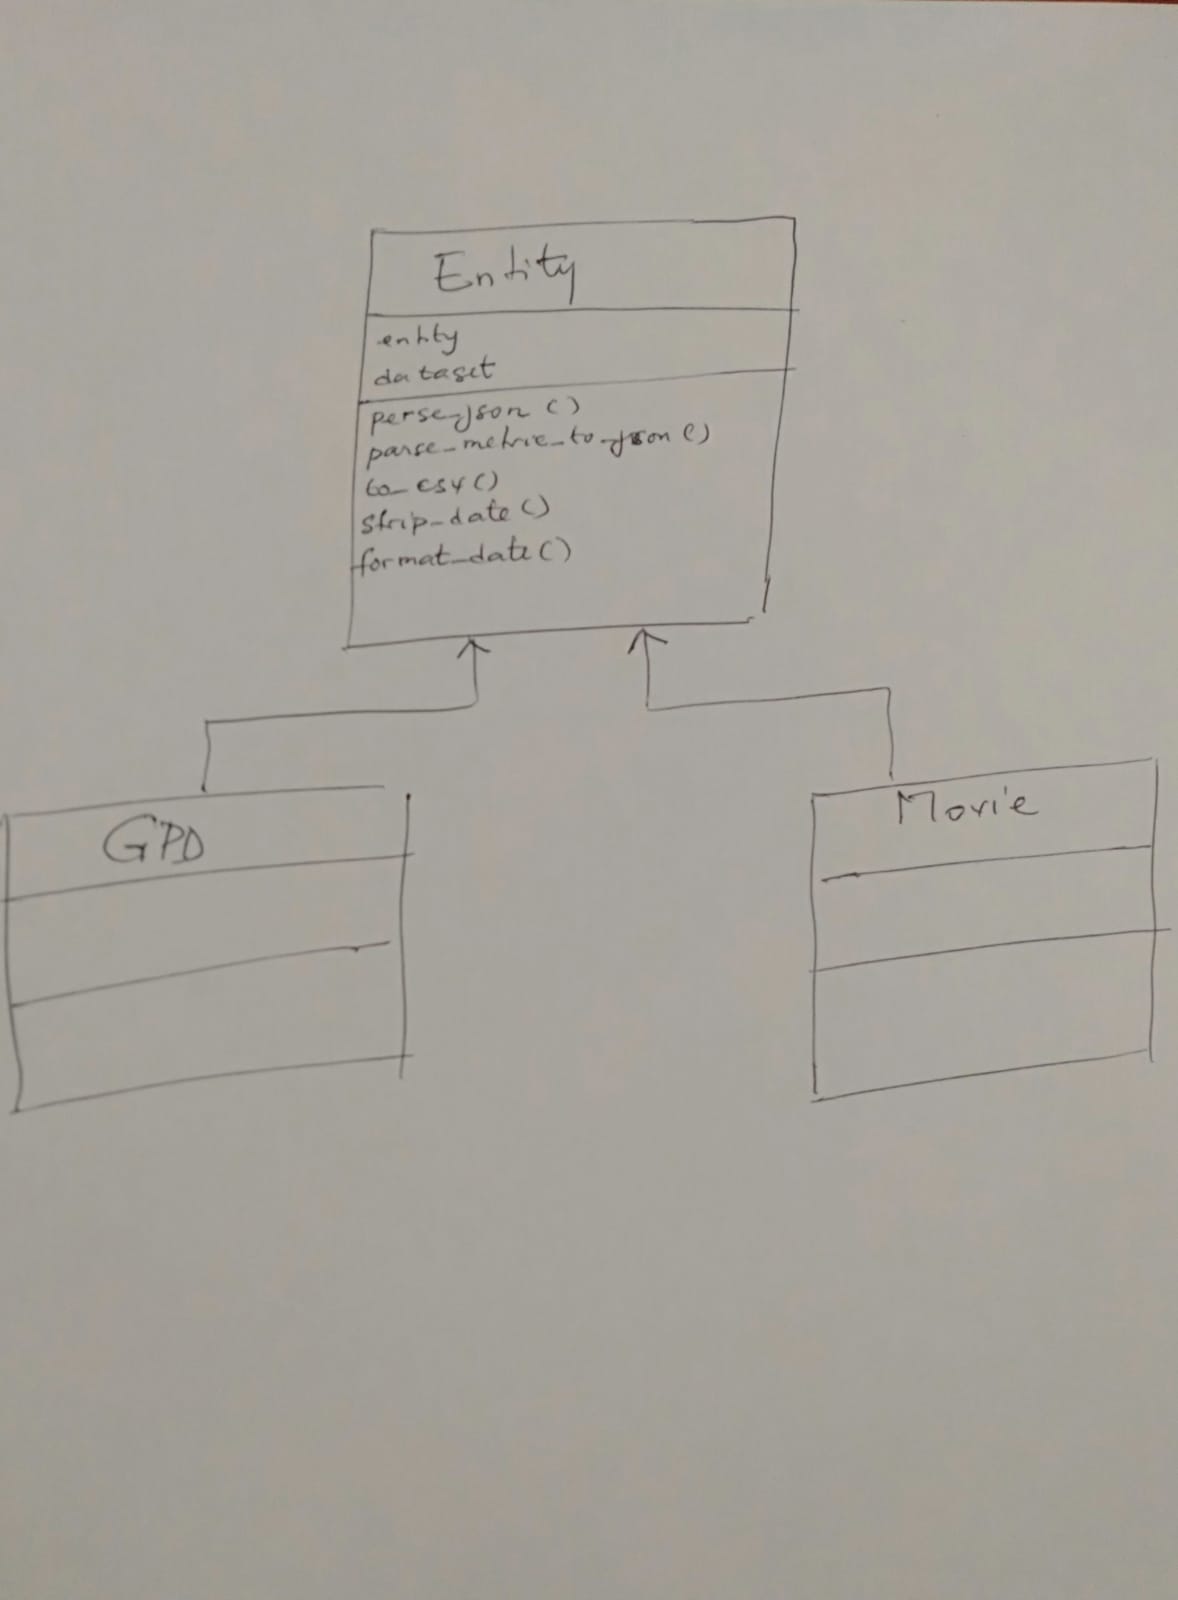 Entity
entity
dataset
perse_json ()
parse_metric_to_json ()
to_csv ()
strip_date ()
format_date ()
GPD
Movie